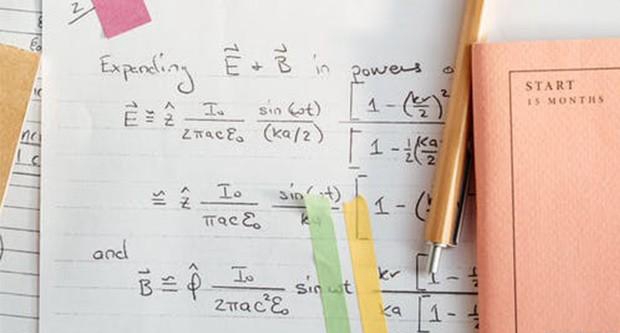 2
Expending E + B in powers
E ≅ ẑ I₀ / 2πacε₀ sin(ωt) / (ka/2) [1 - (kr/2)² / [1 - ½(ka/2
≅ ẑ I₀ / πacε₀ sin(ωt) / ka [1 - (
and
B ≅ φ̂ I₀ / 2πac²ε₀ sin ωt kr [1 - ½ / ka [1 - ½
START
15 MONTHS